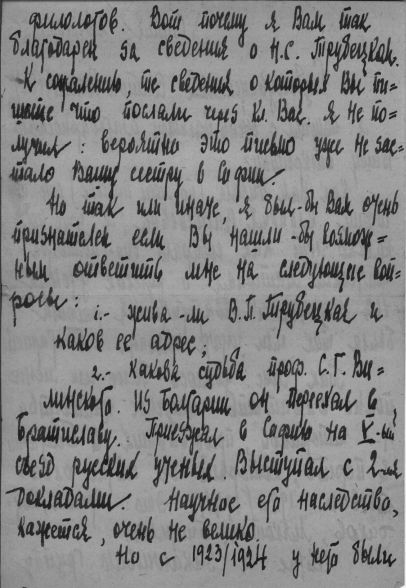 филологов. Вот почему я Вам так
благодарен за сведения о Н.С. Трубецком.
К сожалению, те сведения о которых Вы пи-
шете что послали через Кл. Вас. я не по-
лучил : вероятно это письмо уже не зас-
тало Вашу сестру в Софии.
Но так или иначе, я был-бы Вам очень
признателен если Вы нашли-бы возмож-
ным ответить мне на следующие воп-
росы :
1.- жива-ли В.П. Трубецкая и
каков ее адрес;
2.- Какова судьба проф. С.Г. Ви-
линского. Из Болгарии он переехал в
Братиславу. Приезжал в Софию на V-ый
съезд русских ученых. Выступал с 2-мя
докладами. Научное его наследство,
кажется, очень не велико.
Но с 1923/1924 у него были